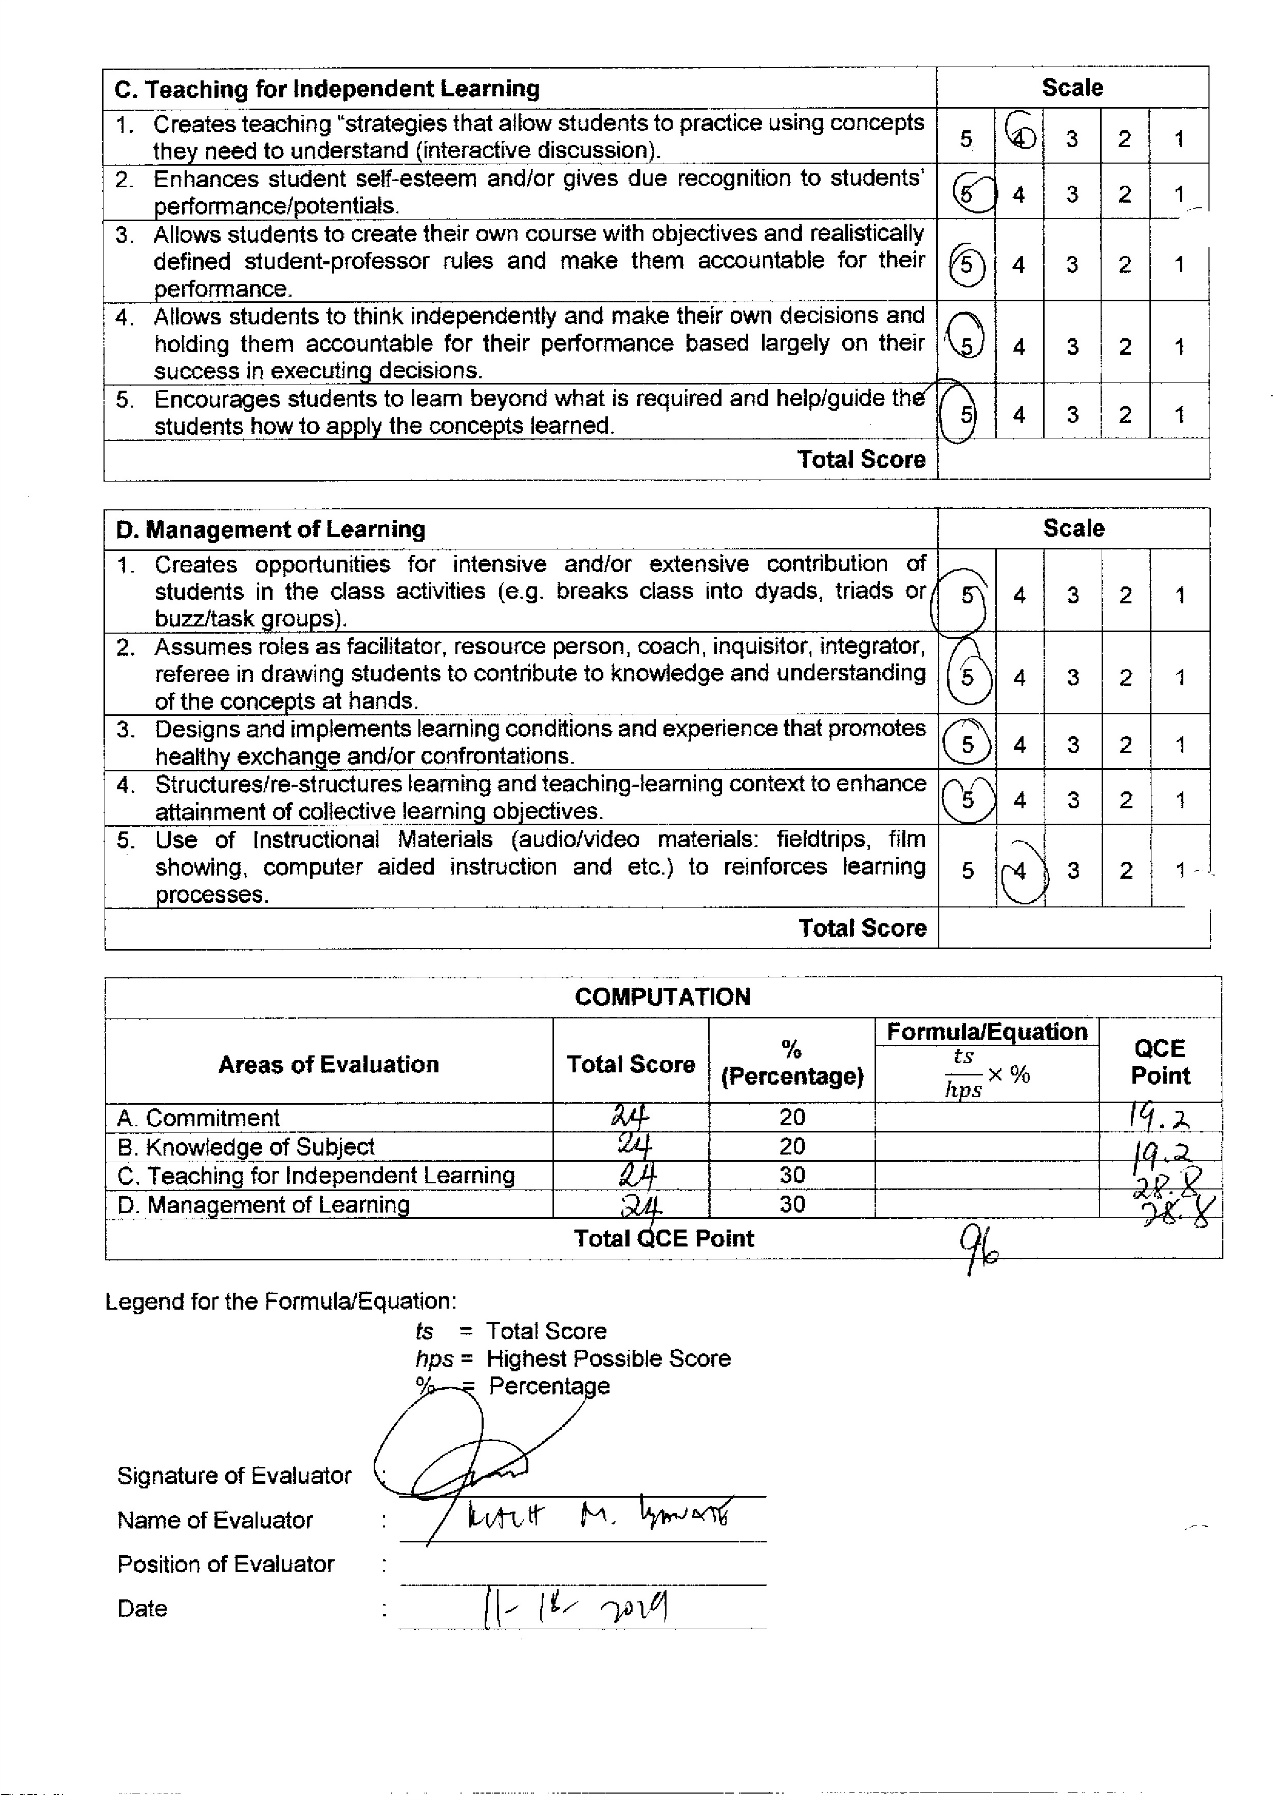 C. Teaching for Independent Learning Scale
1. Creates teaching "strategies that allow students to practice using concepts
they need to understand (interactive discussion). 5 4 3 2 1
2. Enhances student self-esteem and/or gives due recognition to students'
performance/potentials. 5 4 3 2 1
3. Allows students to create their own course with objectives and realistically
defined student-professor rules and make them accountable for their 5 4 3 2 1
performance.
4. Allows students to think independently and make their own decisions and
holding them accountable for their performance based largely on their 5 4 3 2 1
success in executing decisions.
5. Encourages students to learn beyond what is required and help/guide the
students how to apply the concepts learned. 5 4 3 2 1
Total Score
D. Management of Learning Scale
1. Creates opportunities for intensive and/or extensive contribution of
students in the class activities (e.g. breaks class into dyads, triads or 5 4 3 2 1
buzz/task groups).
2. Assumes roles as facilitator, resource person, coach, inquisitor, integrator,
referee in drawing students to contribute to knowledge and understanding 5 4 3 2 1
of the concepts at hands.
3. Designs and implements learning conditions and experience that promotes
healthy exchange and/or confrontations. 5 4 3 2 1
4. Structures/re-structures learning and teaching-learning context to enhance
attainment of collective learning objectives. 5 4 3 2 1
5. Use of Instructional Materials (audio/video materials: fieldtrips, film
showing, computer aided instruction and etc.) to reinforces learning 5 4 3 2 1
processes.
Total Score
COMPUTATION
Areas of Evaluation Total Score % (Percentage) Formula/Equation ts/hps × % QCE Point
A. Commitment 24 20 19.2
B. Knowledge of Subject 24 20 19.2
C. Teaching for Independent Learning 24 30 28.8
D. Management of Learning 24 30 28.8
Total QCE Point 96
Legend for the Formula/Equation:
ts = Total Score
hps = Highest Possible Score
% = Percentage
Signature of Evaluator :
Name of Evaluator : M.
Position of Evaluator :
Date : 11-18-2019